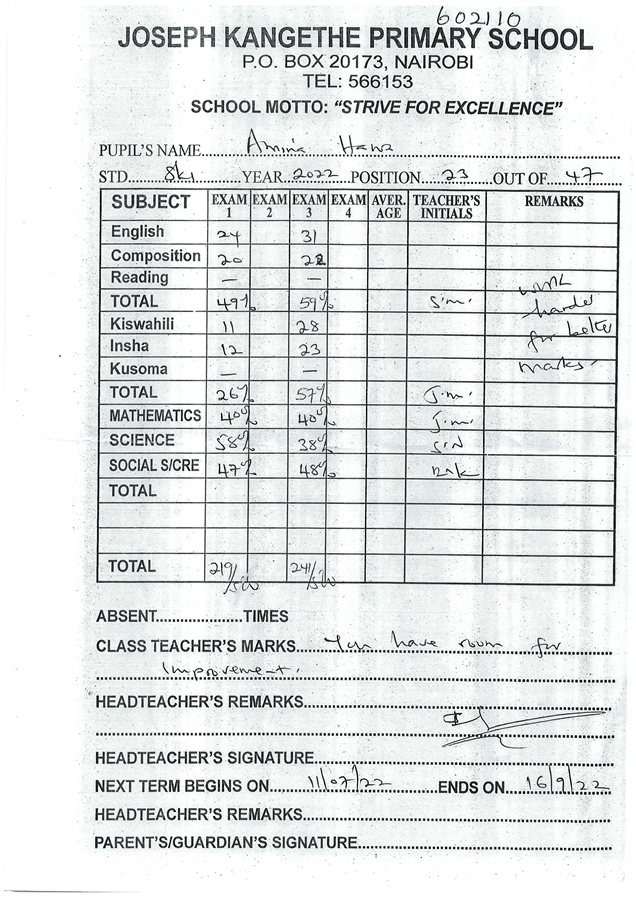 602110
JOSEPH KANGETHE PRIMARY SCHOOL
P.O. BOX 20173, NAIROBI
TEL: 566153
SCHOOL MOTTO: "STRIVE FOR EXCELLENCE"
PUPIL'S NAME Amina Hawa
STD 8K1 YEAR 2022 POSITION 23 OUT OF 47
SUBJECT EXAM 1 EXAM 2 EXAM 3 EXAM 4 AVER. AGE TEACHER'S INITIALS REMARKS
English 24 31
Composition 20 28
Reading — — work
TOTAL 49% 59% S.m. harder
Kiswahili 11 28 for better
Insha 12 23
Kusoma — — marks.
TOTAL 26% 57% J.m.
MATHEMATICS 40% 40% J.m.
SCIENCE 58% 38%
SOCIAL S/CRE 47% 48%
TOTAL
TOTAL 219/500 241/500
ABSENT..................TIMES
CLASS TEACHER'S MARKS You have room for
Improvement.
HEADTEACHER'S REMARKS
HEADTEACHER'S SIGNATURE
NEXT TERM BEGINS ON 11/07/22 ENDS ON 16/9/22
HEADTEACHER'S REMARKS
PARENT'S/GUARDIAN'S SIGNATURE